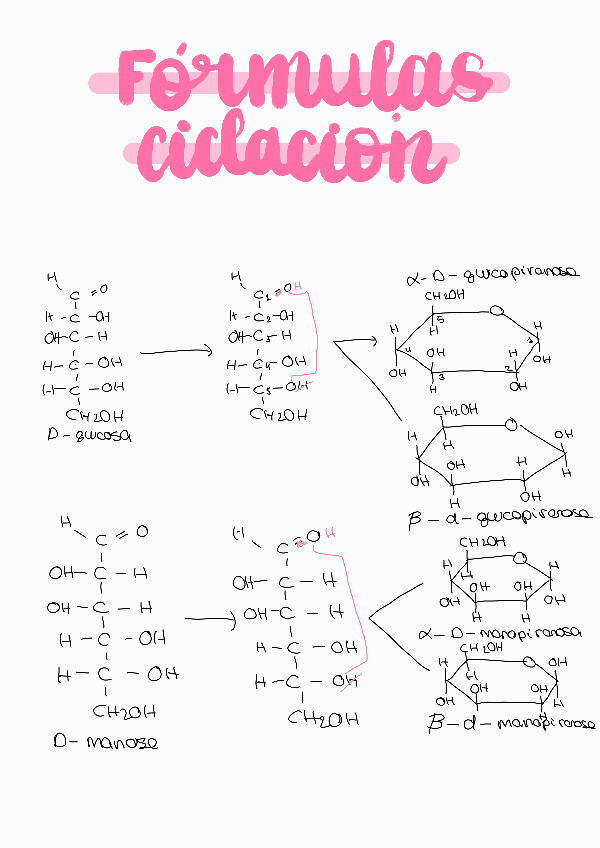 Fórmulas
ciclacion
H
C =O
H - C - OH
OH- C - H
H - C - OH
H - C - OH
CH2OH
D- glucosa
H
C1 =OH
H - C2 - OH
OH- C3 - H
H - C4 - OH
H - C5 - OH
CH2OH
α-D-glucopiranosa
CH2OH
O
5
H
H
H
4
OH
H
1
OH
3
2
OH
H
OH
CH2OH
O
OH
H
H
OH
H
H
OH
H
OH
β - d - glucopiranosa
H
C = O
OH- C - H
OH - C - H
H - C - OH
H - C - OH
CH2OH
D- manosa
H
C = O H
OH- C - H
OH- C - H
H - C - OH
H - C - OH
CH2OH
CH2OH
O
H
H
H
OH
OH
OH
OH
H
H
α-D-manopiranosa
CH2OH
O
OH
H
H
OH
OH
H
H
H
β-d-manopiranosa